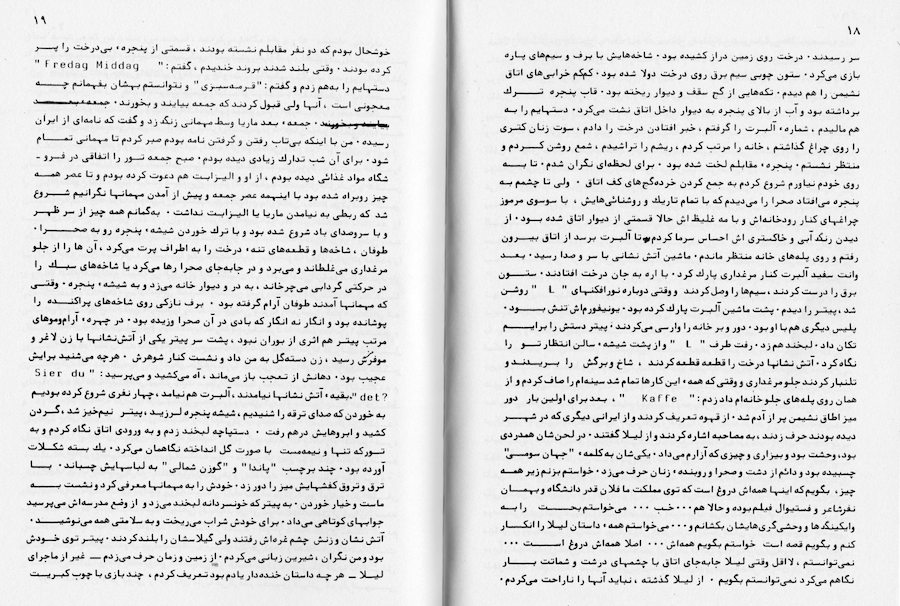 ۱۸
سر رسیدند. درخت روی زمین دراز کشیده بود. شاخه‌هایش با برف و سیم‌های پاره
بازی می‌کرد. ستون چوبی سیم برق روی درخت دولا شده بود. کم‌کم خرابی‌های اتاق
نشیمن را هم دیدم. تکه‌هایی از گچ سقف و دیوار ریخته بود. قاب پنجره ترك
برداشته بود و آب از بالای پنجره به دیوار داخل اتاق نشت می‌کرد. دستهایم را به
هم مالیدم، شماره‌ء آلبرت را گرفتم، خبر افتادن درخت را دادم، سوت زنان کتری
را روی چراغ گذاشتم، خانه را مرتب کردم، ریشم را تراشیدم، شمع روشن کردم و
منتظر نشستم. پنجره‌ء مقابلم لخت شده بود. برای لحظه‌ای نگران شدم. تا به
روی خودم نیاورم شروع کردم به جمع کردن خرده‌گچ‌های کف اتاق. ولی تا چشمم به
پنجره می‌افتاد صحرا را می‌دیدم که با تمام تاریك و روشنائی‌هایش، با سوسوی مرموز
چراغهای کنار رودخانه‌اش و با مه غلیظ اش حالا قسمتی از دیوار اتاق شده بود. از
دیدن رنگ آبی و خاکستری اش احساس سرما کردم و تا آلبرت برسد از اتاق بیرون
رفتم و روی پله‌های خانه منتظر ماندم. ماشین آتش نشانی با سر و صدا رسید. بعد
وانت سفید آلبرت کنار مرغداری پارك کرد. با اره به جان درخت افتادند. ستون
برق را درست کردند، سیم‌ها را وصل کردند و وقتی دوباره نورافکنهای "L" روشن
شد، پیتر را دیدم. پشت ماشین آلبرت پارك کرده بود. یونیفورم‌اش تنش بود.
پلیس دیگری هم با او بود. دور و بر خانه را وارسی می‌کردند. پیتر دستش را برایم
تکان داد. لبخند هم زد. رفت طرف "L" و از پشت شیشه‌ء سالن انتظار تو را
نگاه کرد. آتش نشانها درخت را قطعه قطعه کردند، شاخ و برگش را بریدند و
تلنبار کردند جلو مرغداری و وقتی که همه‌ء این کارها تمام شد سینه‌ام را صاف کردم و از
همان روی پله‌های جلو خانه‌ام داد زدم: "Kaffe"، بعد برای اولین بار دور
میز اطاق نشیمن پر از آدم شد. از قهوه تعریف کردند و از ایرانی دیگری که در شهر
دیده بودند حرف زدند، به مصاحبه اشاره کردند و از لیلا گفتند. در لحن‌شان همدردی
بود، وحشت بود و بیزاری و چیزی که آزارم می‌داد. یکی‌شان به کلمه‌ء "جهان سومی"
چسبیده بود و دائم از دشت و صحرا و روبنده‌ء زنان حرف می‌زد. خواستم بزنم زیر همه
چیز، بگویم که اینها همه‌اش دروغ است که توی مملکت ما فلان قدر دانشگاه و بهمان
نفر شاعر و فستیوال فیلم بوده و حالا هم... خب ... می‌خواستم بحث را به
وایکینگ‌ها و وحشی‌گری‌هایشان بکشانم و... می‌خواستم همه‌ء داستان لیلا را انکار
کنم و بگویم قصه است خواستم بگویم همه‌اش ... اصلا همه‌اش دروغ است ...
نمی‌توانستم، لااقل وقتی لیلا جابه‌جای اتاق با چشمهای درشت و شماتت بار
نگاهم می‌کرد نمی‌توانستم بگویم. از لیلا گذشته، نباید آنها را ناراحت می‌کردم.
۱۹
خوشحال بودم که دو نفر مقابلم نشسته بودند، قسمتی از پنجره‌ء بی‌درخت را پر
کرده بودند. وقتی بلند شدند بروند خندیدم، گفتم: "Fredag Middag"
دستهایم را به‌هم زدم و گفتم: "قرمه‌سبزی" و نتوانستم بهشان بفهمانم چه
معجونی است، آنها ولی قبول کردند که جمعه بیایند و بخورند. جمعه‌ء بعد
بیایند و بخورند. جمعه‌ء بعد ماریا وسط مهمانی زنگ زد و گفت که نامه‌ای از ایران
رسیده. من با اینکه بی‌تاب رفتن و گرفتن نامه بودم صبر کردم تا مهمانی تمام
شود. برای آن شب تدارك زیادی دیده بودم. صبح جمعه تور را اتفاقی در فرو-
شگاه مواد غذائی دیده بودم، از او و الیزابت هم دعوت کرده بودم و تا عصر همه
چیز روبراه شده بود با اینهمه عصر جمعه و پیش از آمدن مهمانها نگرانیم شروع
شد که ربطی به نیامدن ماریا یا الیزابت نداشت. به‌گمانم همه چیز از سر ظهر
و با سروصدای باد شروع شده بود و با ترك خوردن شیشه‌ء پنجره رو به صحرا.
طوفان، شاخه‌ها و قطعه‌های تنه‌ء درخت را به اطراف پرت می‌کرد، آن ها را از جلو
مرغداری می‌غلطاند و می‌برد و در جابه‌جای صحرا رها می‌کرد یا شاخه‌های سبك را
در حرکتی گردابی می‌چرخاند، به در و دیوار خانه می‌زد و به شیشه‌ء پنجره. وقتی
که مهمانها آمدند طوفان آرام گرفته بود. برف نازکی روی شاخه‌های پراکنده را
پوشانده بود و انگار نه انگار که بادی در آن صحرا وزیده بود. در چهره‌ء آرام و موهای
مرتب پیتر هم اثری از بوران نبود، پشت سر پیتر یکی از آتش‌نشانها با زن لاغر و
موفرش رسید، زن دسته‌گل به من داد و نشست کنار شوهرش. هرچه می‌شنید برایش
عجیب بود. دهانش از تعجب باز می‌ماند، آه می‌کشید و می‌پرسید: "Sier du
det?"، بقیه‌ء آتش نشانها نیامدند، آلبرت هم نیامد، چهار نفری شروع کرده بودیم
به خوردن که صدای ترقه را شنیدیم، شیشه پنجره لرزید، پیتر نیم‌خیز شد، گردن
کشید و ابروهایش درهم رفت. دستپاچه لبخند زدم و به ورودی اتاق نگاه کردم و به
تور که تنها و نیمه‌مست با صورت گل انداخته نگاهمان می‌کرد. یك بسته شکلات
آورده بود. چند برچسب "پاندا" و "گوزن شمالی" به لباسهایش چسباند. با
ترق و تروق کفشهایش میز را دور زد. خودش را به مهمانها معرفی کرد و نشست به
ماست و خیار خوردن. به پیتر که خونسردانه لبخند می‌زد و از وضع مدرسه‌اش می‌پرسید
جوابهای کوتاهی می‌داد. برای خودش شراب می‌ریخت و به سلامتی همه می‌نوشید.
آتش نشان و زنش چشم غره‌اش رفتند ولی گیلاسشان را بلند کردند. پیتر توی خودش
بود و من نگران، شیرین زبانی می‌کردم. از زمین و زمان حرف می‌زدم — غیر از ماجرای
لیلا — هر چه داستان خنده‌دار یادم بود تعریف کردم، چند بازی با چوب کبریت